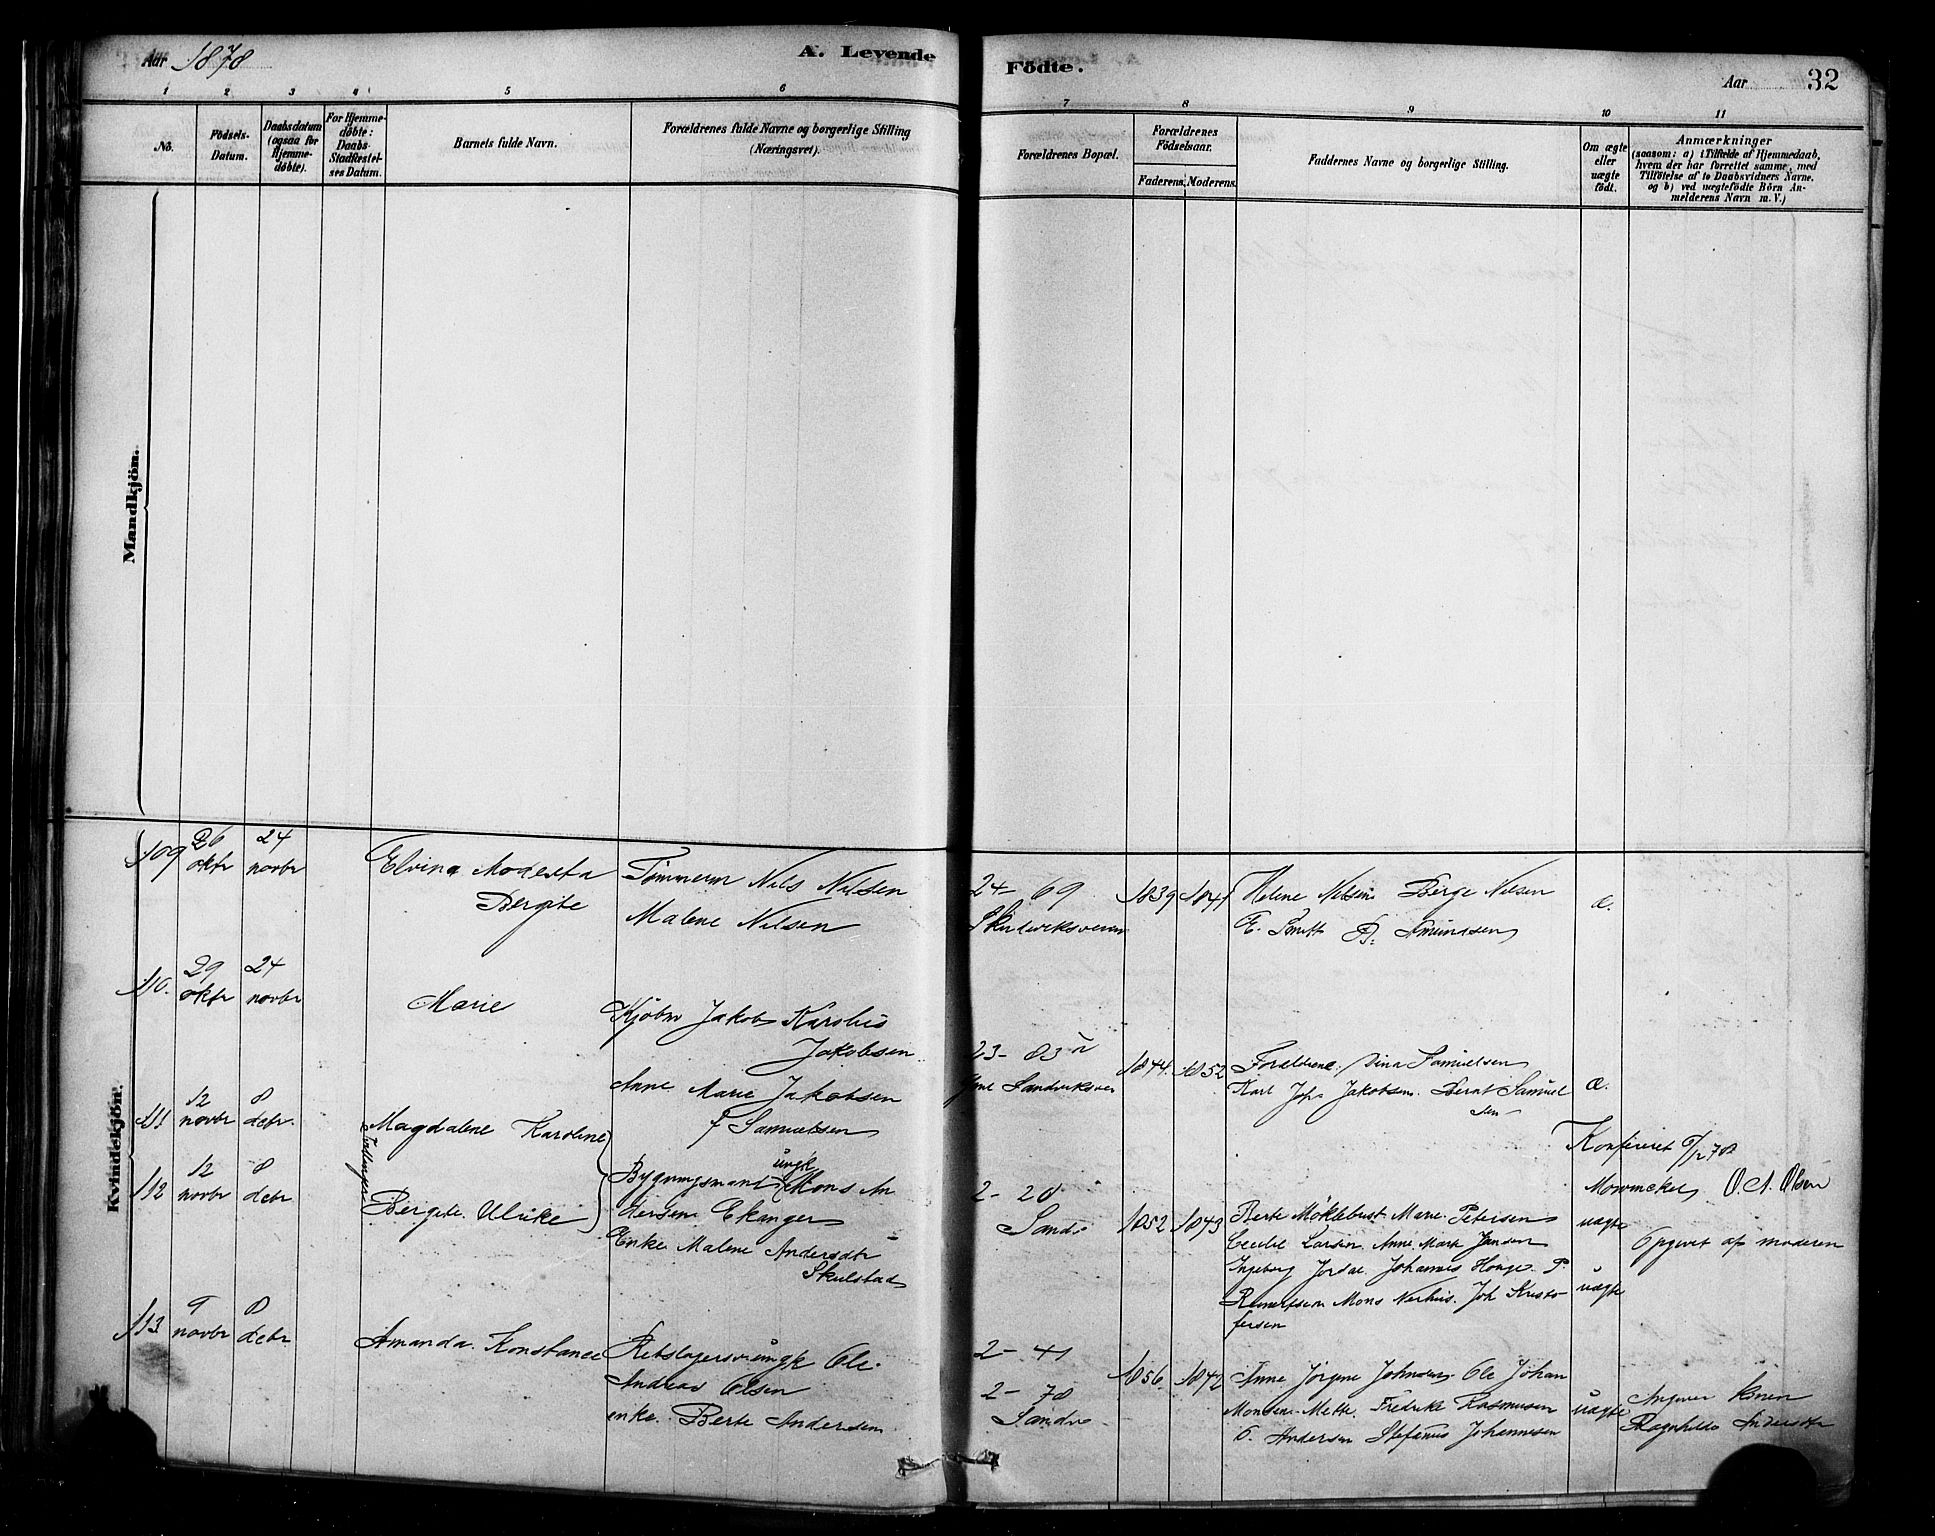 Aar 1878
A. Levende
Födte.
Aar
32
1 2 3 4 5 6
7 8 9 10 11
No.
Födsels-
Datum.
Daabsdatum
(ogsaa for
Hjemme-
döbte).
For Hjemme-
döbte:
Daabs-
Stadfæstel-
ses Datum.
Barnets fulde Navn.
Forældrenes fulde Navne og borgerlige Stilling
(Næringsvei).
Forældrenes Bopæl.
Forældrenes
Födselsaar.
Faderens. Moderens.
Faddernes Navne og borgerlige Stilling.
Om ægte
eller
uægte
födt.
Anmærkninger
(saasom: a) i Tilfælde af Hjemmedaab,
hvem der har forrettet samme, med
Tilföielse af to Daabsvidners Navne.
og b) ved uægtefödte Börn An-
melderens Navn m. V.)
Mandkjön.
Kvindekjön.
109 26 oktr 24 novbr
Elvina Modesta
Bergite
Tömmerm Nils Nilsen
Malene Nilsen
24 - 69
1839 1841
Helene Nilsen Berge Nilsen
E. Smitt B. Amundsen
æ.
110. 29 oktr 24 novbr
Marie
Kjöbm Jakob Karolus
Jakobsen
Anne Marie Jakobsen
f Samuelsen
23 - 83
Sandviksvei
1844. 1852
Forældrene. Dina Samuelsen
Karl Joh. Jakobsen. Bernt Samuel
sen
æ.
111 12 novbr 8 debr.
Magdalene Karoline
Tvillinger
112 12 novbr 8 debr
Bergite Ulrike
Bygningsmand ungk Mons An
dersen Ekanger
Enke Malene Andersdtr
Skulstad
2 - 20
Sandv
1852 1843
Berte Möklebust Marie Petersen
Cecilie Larsen Anne Mart Jansen
Ingeborg Jordal Johannes Hauge P.
Reinertsen Mons Nerhus. Joh Kristo
fersen
uægte
uægte
Konfereret 6/12 78
Mowinckel O. A. Olsen
Opgivet af moderen
113 9 novbr 8 debr
Amanda Konstance
Rebslagersv. ungk Ole
Andreas Olsen
enke Berte Andersen
2 - 41
2 - 78
Sandv
1856. 1842
Anne Jörgine Johnsen Ole Johan
Monsen Mette Fredrike Rasmusen
O. Andersen Stefanus Johannesen
uægte
Angiver konen
Ragnhilde Andersdtr